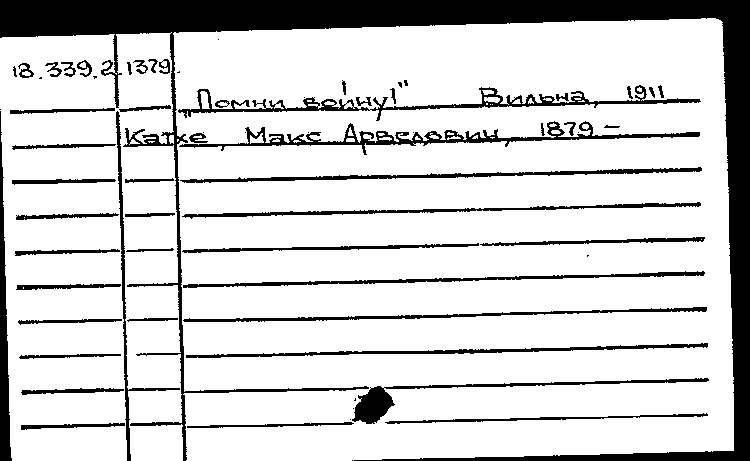 18.339.2.1379.
„Помни войну!" Вильна, 1911
Катхе, Макс Арведович, 1879 –